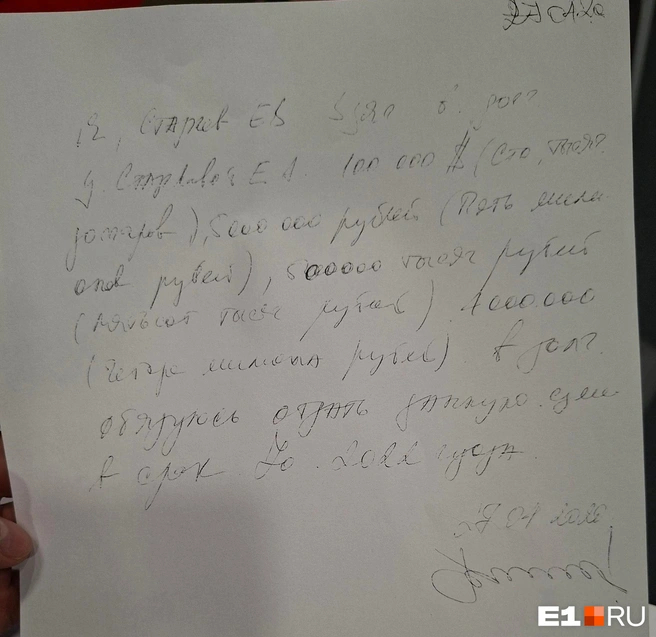 Я, Старков ЕВ взял в долг
у Старковой Е А. 100 000 $ (Сто тысяч
долларов), 5000 000 рублей (Пять милли
онов рублей), 500000 тысяч рублей
(пятьсот тысяч рублей) 4000.000
(Четыре миллиона рублей). В долг.
обязуюсь отдать данную сумм
в срок до 2022 года.
E1.RU